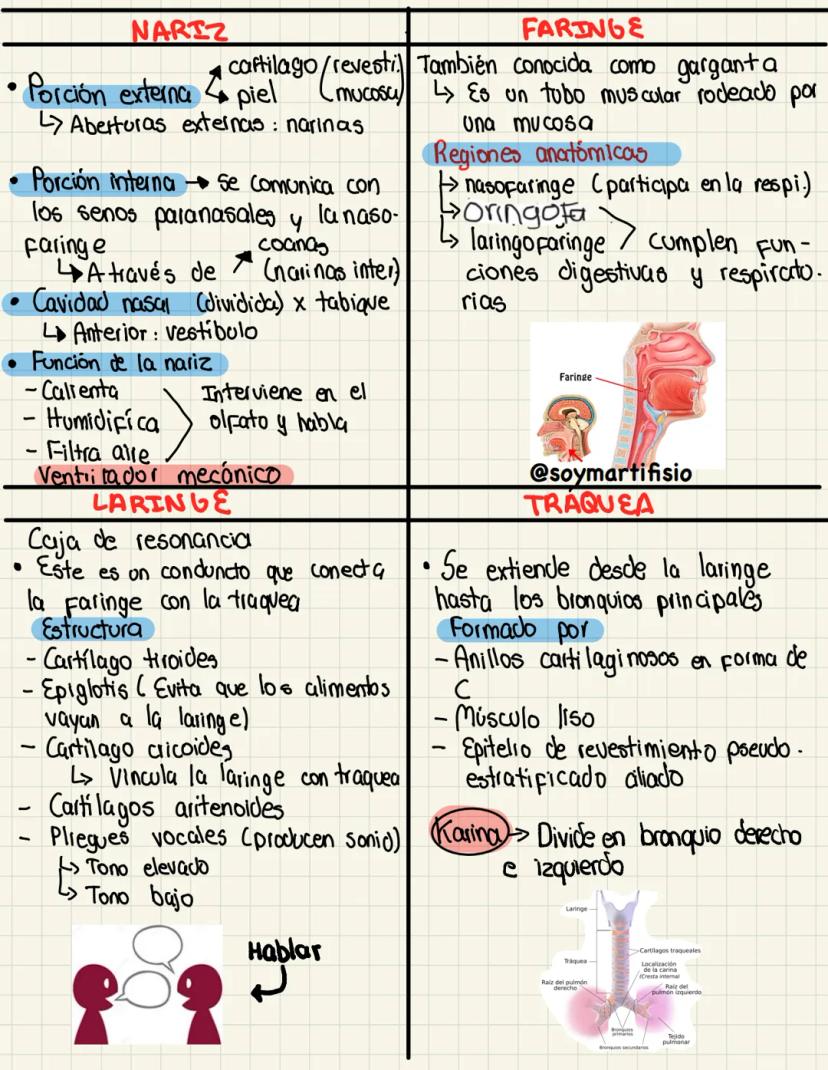 NARIZ
• Porción externa
cartilago (revesti.
piel mucosa)
↳ Aberturas externas : narinas
• Porción interna → se comunica con
los senos paranasales y la naso-
faringe
↳ A través de
coanas
(narinas inter)
• Cavidad nasal (dividida) x tabique
↳ Anterior : vestíbulo
• Función de la nariz
- Calienta
- Humidifica
- Filtra aire
Interviene en el
olfato y habla
Ventilador mecánico
FARINGE
También conocida como garganta
↳ Es un tubo muscular rodeado por
una mucosa
Regiones anatómicas
↳ nasofaringe (participa en la respi.)
↳ Oringofa
↳ laringofaringe
cumplen fun-
ciones digestivas y respirato-
rias
Faringe
@soymartifisio
LARINGE
Caja de resonancia
• Este es un conducto que conecta
la faringe con la traquea
Estructura
- Cartílago tiroides
- Epiglotis ( Evita que los alimentos
vayan a la laringe)
- Cartílago cricoides
↳ Vincula la laringe con traquea
- Cartílagos aritenoides
- Pliegues vocales (producen sonid)
↳ Tono elevado
↳ Tono bajo
Hablar
TRÁQUEA
• Se extiende desde la laringe
hasta los bronquios principales
Formado por
- Anillos cartilaginosos en forma de
C
- Músculo liso
- Epitelio de revestimiento pseudo-
estratificado ciliado
Karina → Divide en bronquio derecho
e izquierdo
Laringe
Tráquea
Cartílagos traqueales
Localización
de la carina
(Cresta interna)
Raíz del pulmón
derecho
Raíz del
pulmón izquierdo
Bronquios
primarios
Tejido
pulmonar
Bronquios secundarios